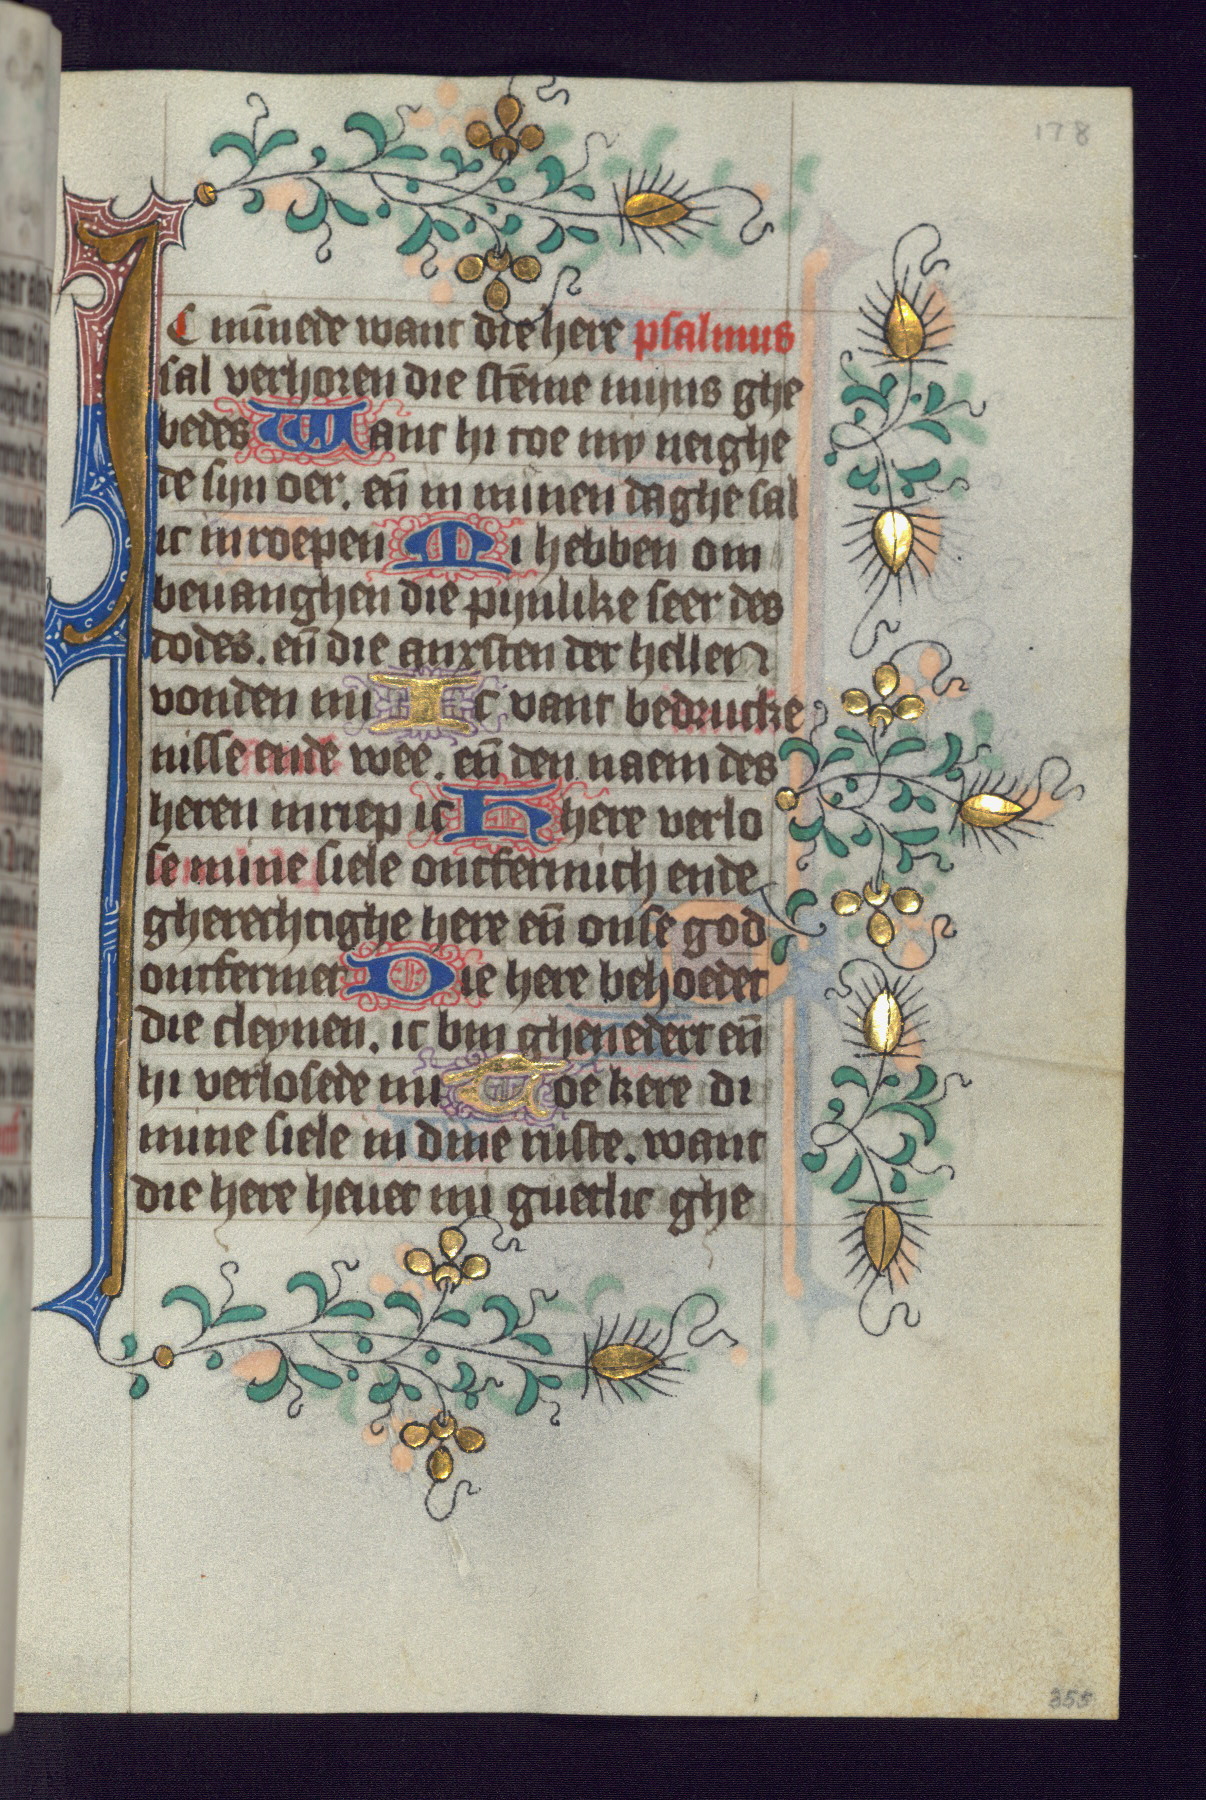 178
IC mīnede want die here psalmus
sal verhoren die stēme mijns ghe
bedes Want hi toe my neighe
de sijn oer. eñ in minen daghe sal
ic inroepen Mi hebben om
bevanghen die pijnlike seer des
dodes. eñ die anxsten der hellen
vonden mi Ic vant bedrucke
nisse ende wee. eñ den naem des
heren inriep ic H here verlo
se mine siele ontfermich ende
gherechtighe here eñ onse god
ontfermet Die here behoedet
die cleynen. ic bin ghenedert eñ
hi verlosede mi Toe kere di
mine siele in dine ruste. want
die here hevet mi guetlic ghe
355